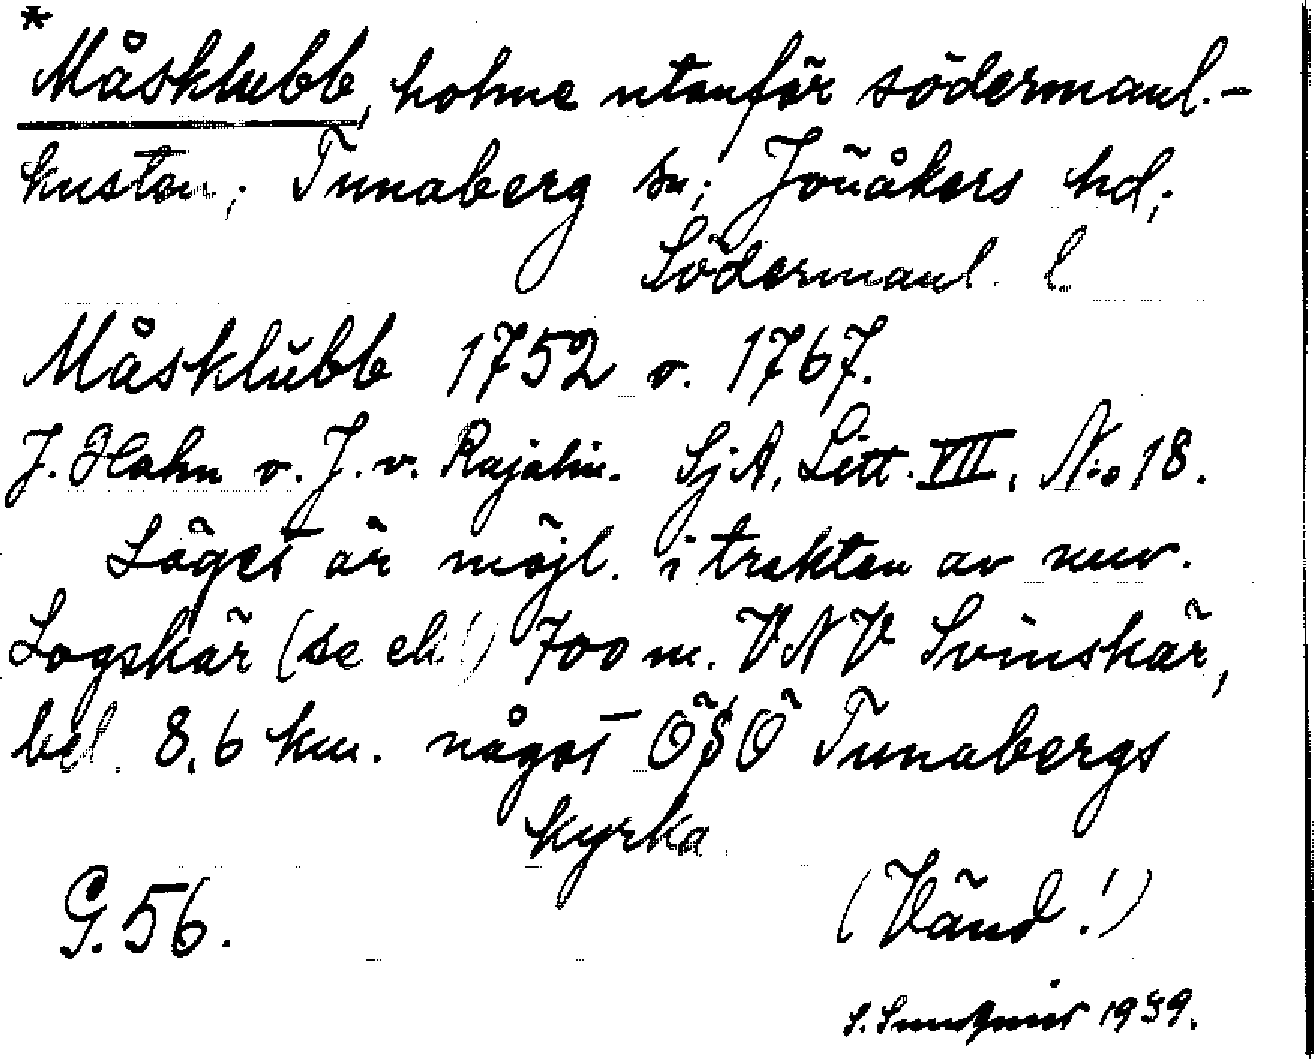 *Måsklubb, holme utanför södermanl.-
kusten; Tunaberg sn; Jönåkers hd;
Södermanl. l.
Måsklubb 1752 o. 1767.
J. Hahn o. J. v. Rajalin. SjA, Litt. VII, N:o 18.
Läget är möjl. i trakten av nuv.
Logskär (se ek!) 700 m. VNV Svinskär,
bel. 8,6 km. något ÖSÖ Tunabergs
kyrka.
G. 56.
(Vänd!)
S. Sundqvist 1939.